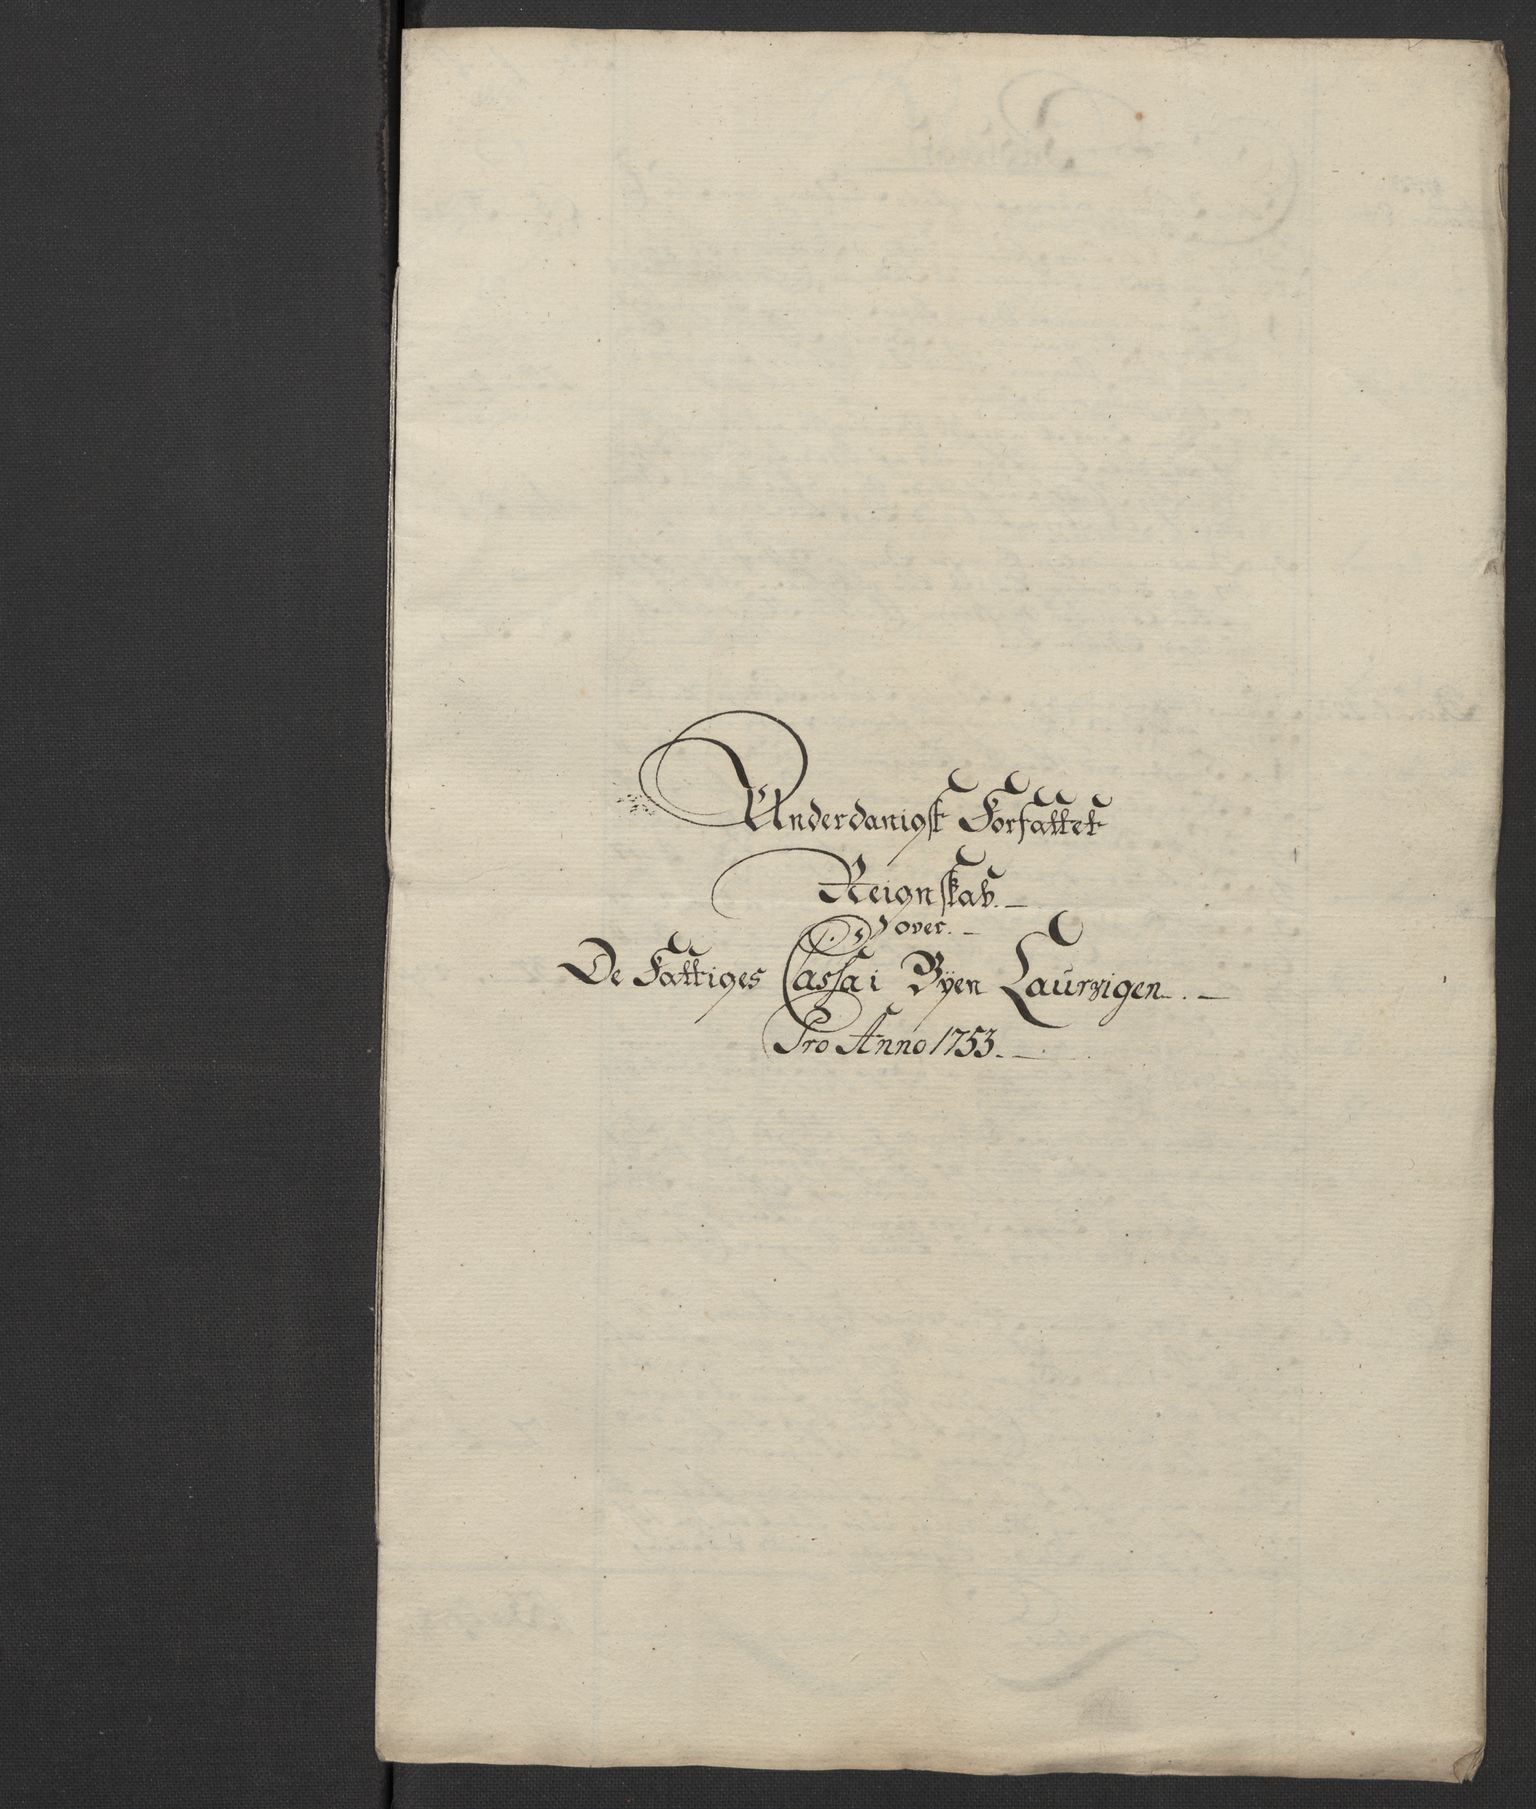 Underdanigst Forfattet
Reignskab.
over.
De Fattiges Cassa i Bÿen Laurvigen.
Pro Anno 1753.